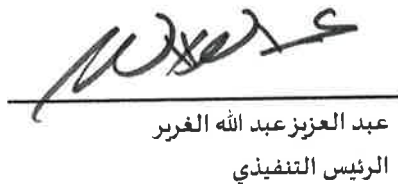 عبد العزيز عبد الله الغرير
الرئيس التنفيذي